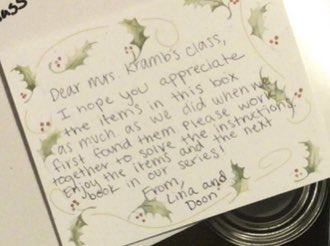 ass
Dear Mrs. Krambs class,
I hope you appreciate
the items in this box
as much as we did when we
first found them. Please work
together to solve the instructions.
Enjoy the items and the next
book in our series!
From,
Lina and
Doon